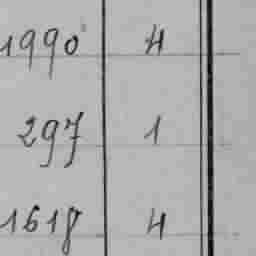 1990 4
297 1
1618 4